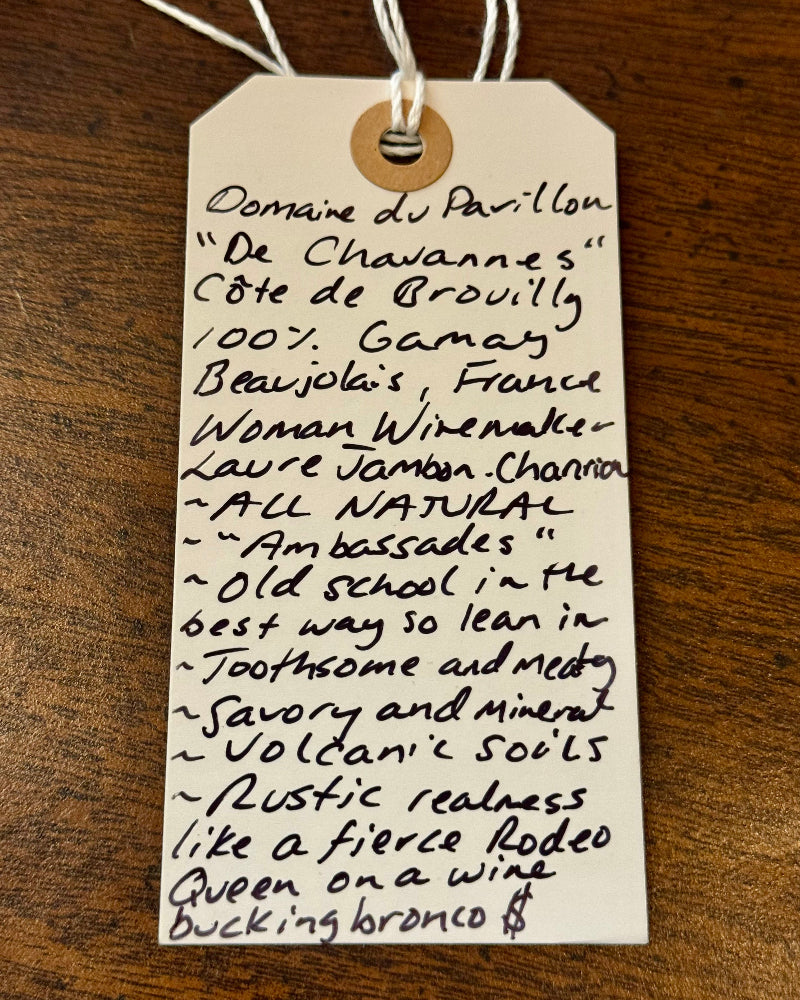 Domaine du Pavillon
"De Chavannes"
Côte de Brouilly
100% Gamay
Beaujolais, France
Woman Winemaker
Laure Jambon-Chanrion
~ALL NATURAL
~"Ambassades"
~Old school in the
best way so lean in
~Toothsome and meaty
~Savory and mineral
~Volcanic soils
~Rustic realness
like a fierce Rodeo
Queen on a wine
bucking bronco $